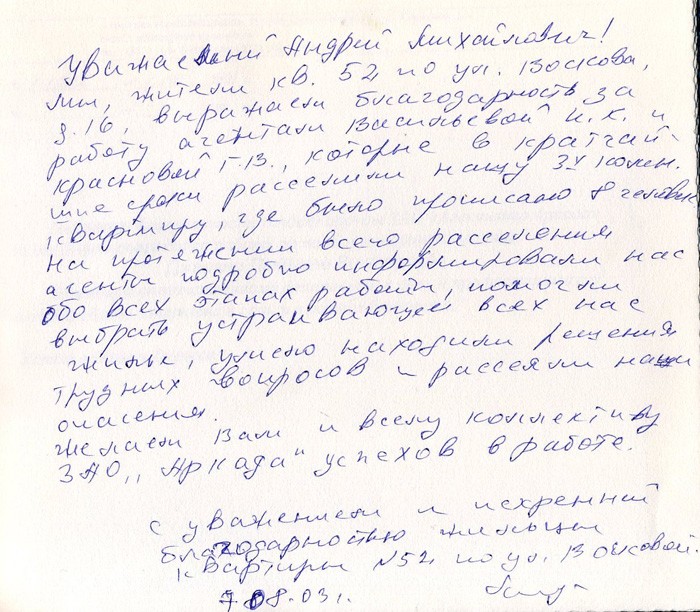 Уважаемый Андрей Михайлович!
Мы, жители кв. 52 по ул. Воскова,
д. 16, выражаем благодарность за
работу агентам Васильевой И. К. и
Красновой Г.В., которые в кратчай-
шие сроки расселили нашу 3х комн.
квартиру, где было прописано 8 человек
На протяжении всего расселения
агенты подробно информировали нас
обо всех этапах работы, помогли
выбрать устраивающее всех нас
жилье, умело находили решения
трудных вопросов и рассеяли наши
опасения.
Желаем Вам и всему коллективу
ЗАО „Аркада" успехов в работе.
с уважением и искренней
благодарностью жильцы
квартиры №52 по ул. Восковой.
7.08.03г.